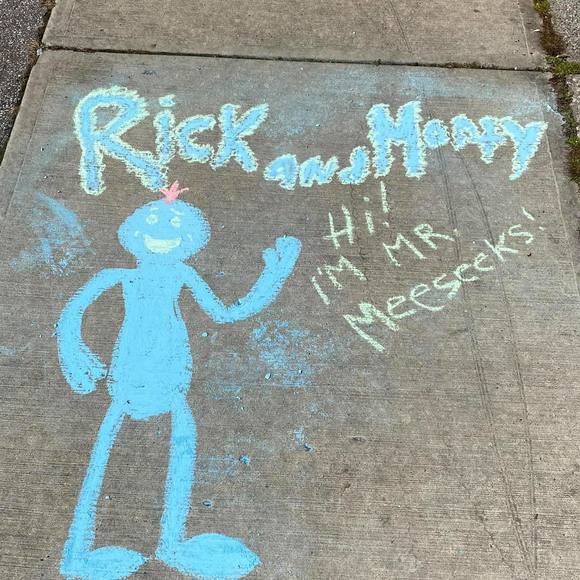 Rick and Morty
Hi!
I'M MR.
Meeseeks!